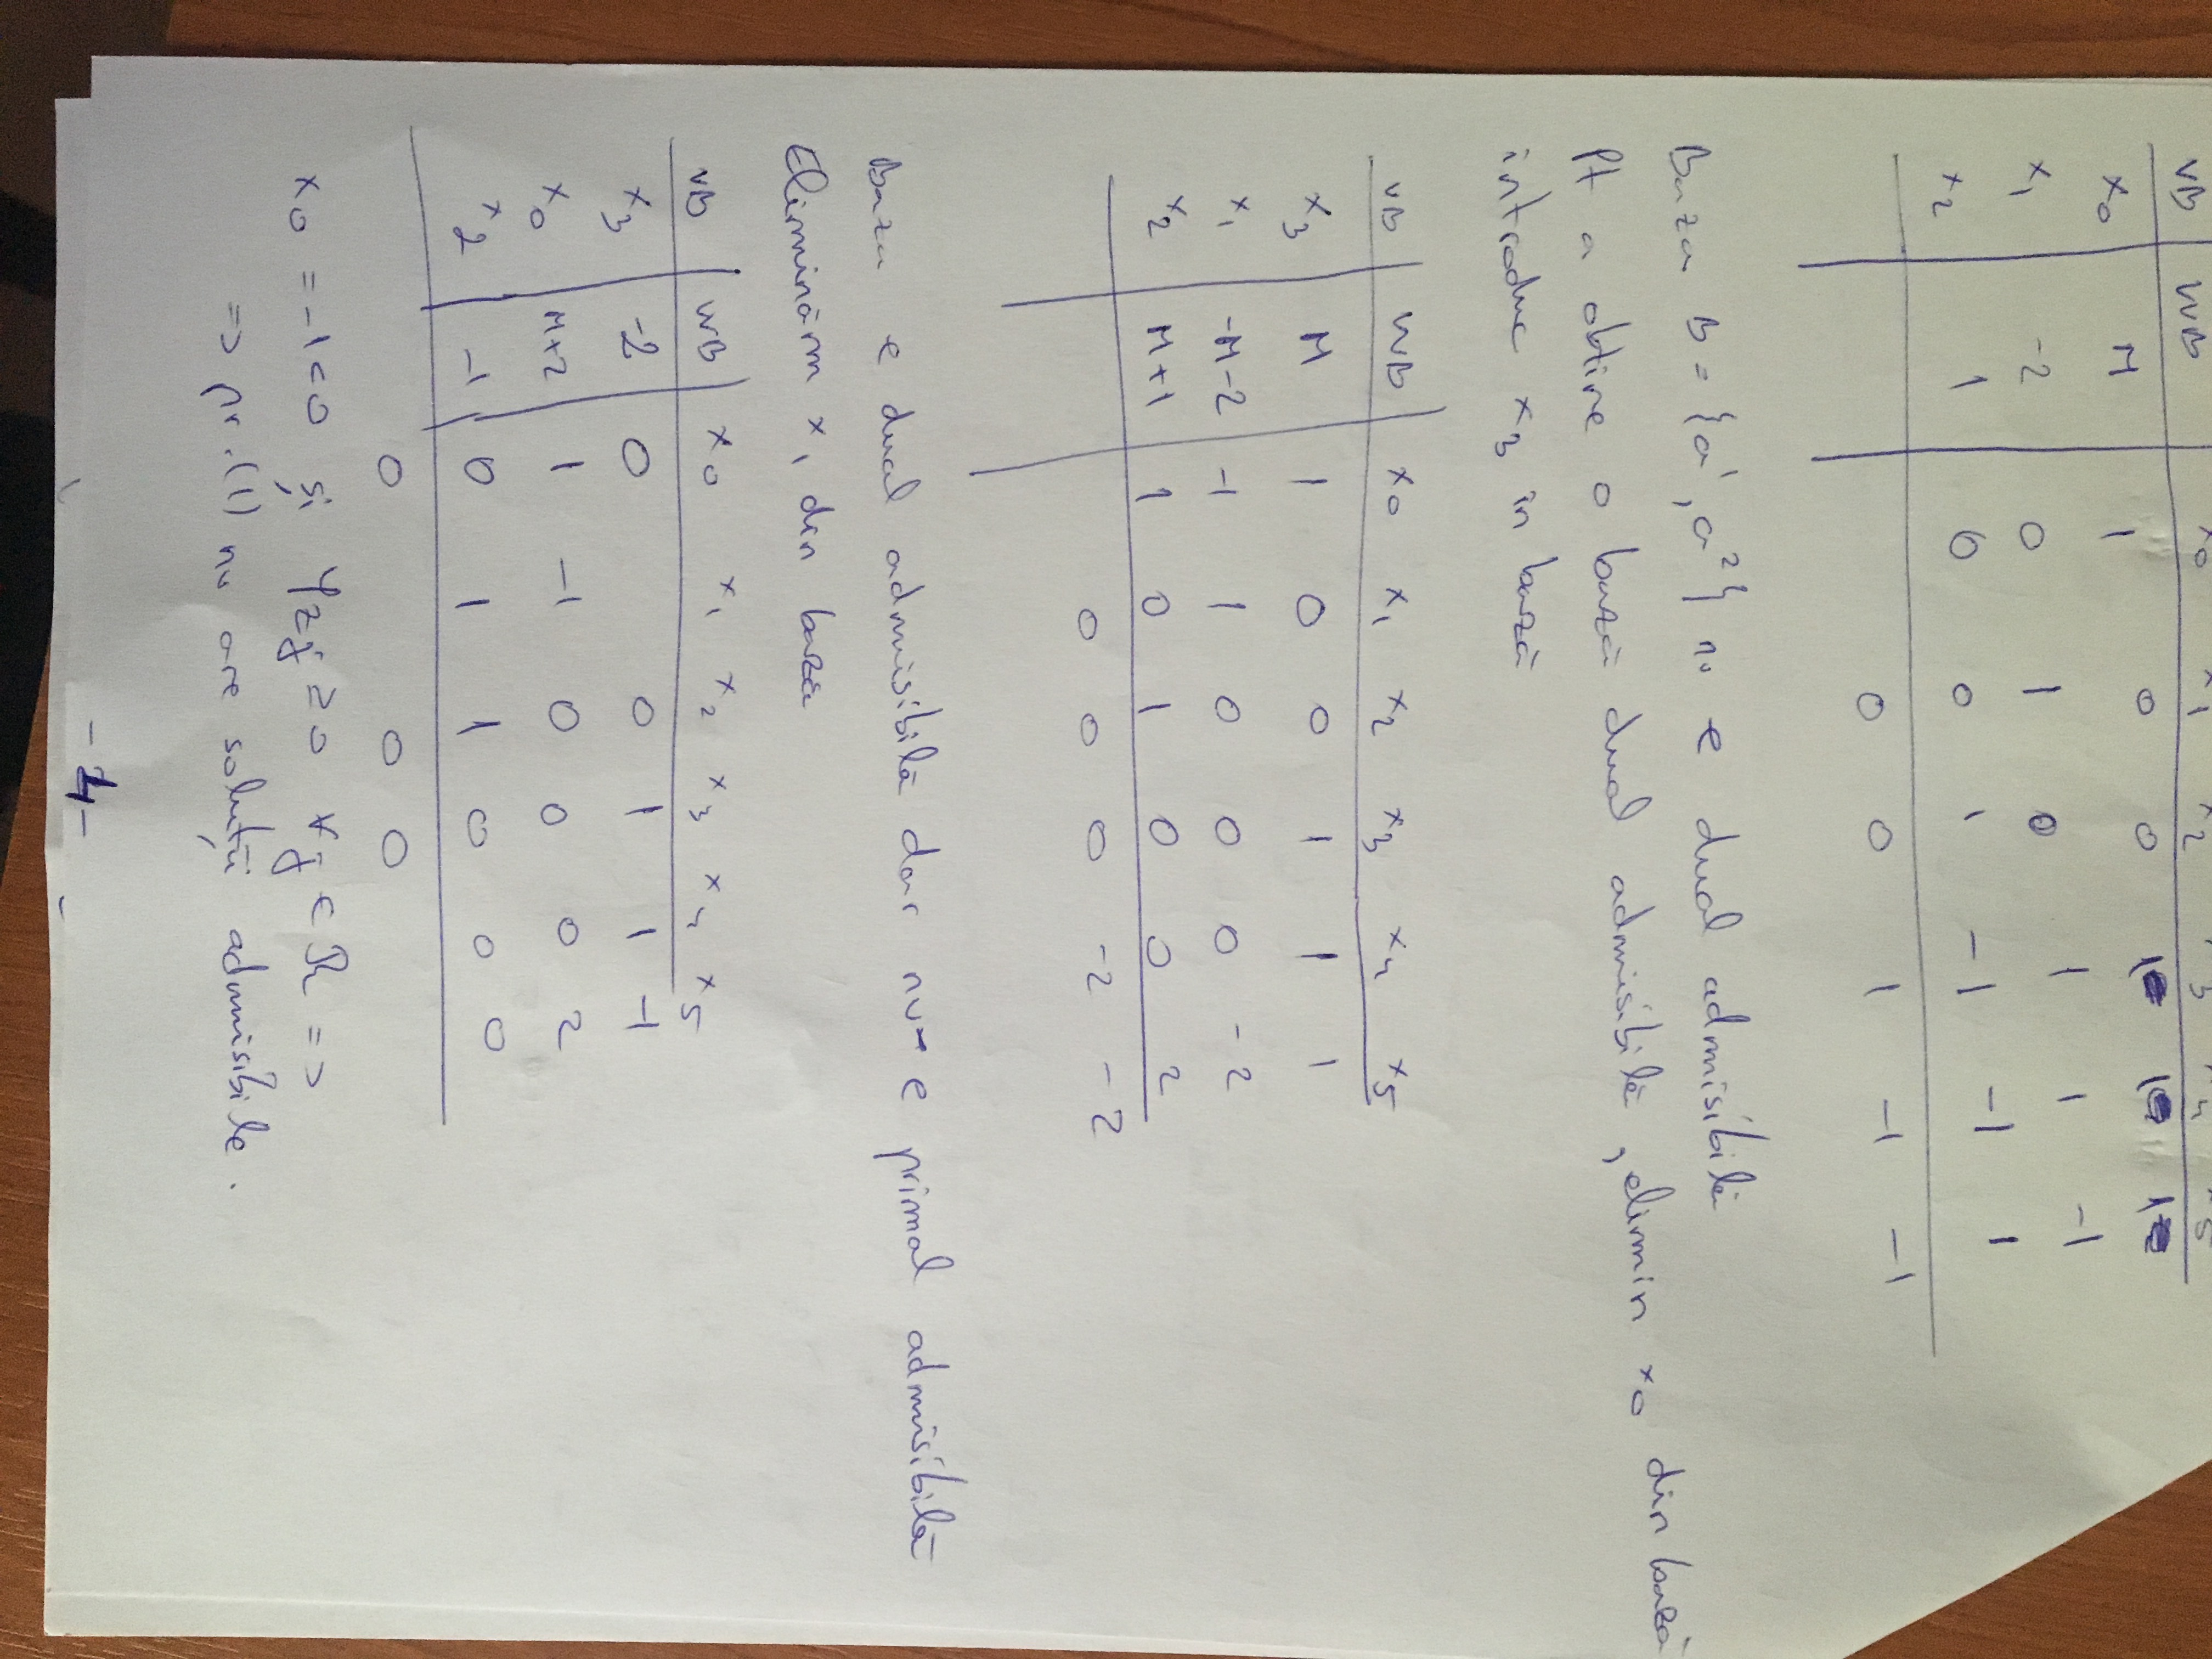 VB VVB x0 x1 x2 x3 x4 x5
x0 M 1 0 0 1 1 1
x1 -2 0 1 0 1 1 -1
x2 1 0 0 1 -1 -1 1
0 0 1 -1 -1
Baza B = {a¹, a²} nu e dual admisibilă
Pt a obține o bază dual admisibilă, elimin x0 din bază
introduc x3 în bază
VB VVB x0 x1 x2 x3 x4 x5
x3 M 1 0 0 1 1 1
x1 -M-2 -1 1 0 0 0 -2
x2 M+1 1 0 1 0 0 2
0 0 0 -2 -2
Baza e dual admisibilă dar nu e primal admisibilă
Eliminăm x1 din bază
VB VVB x0 x1 x2 x3 x4 x5
x3 -2 0 0 1 1 -1
x0 M+2 1 -1 0 0 0 2
x2 -1 0 1 1 0 0 0
0 0 0
x0 = -1 < 0 și yzj ≥ 0 ∀j ∈ R =>
=> pr. (1) nu are soluții admisibile.
-4-